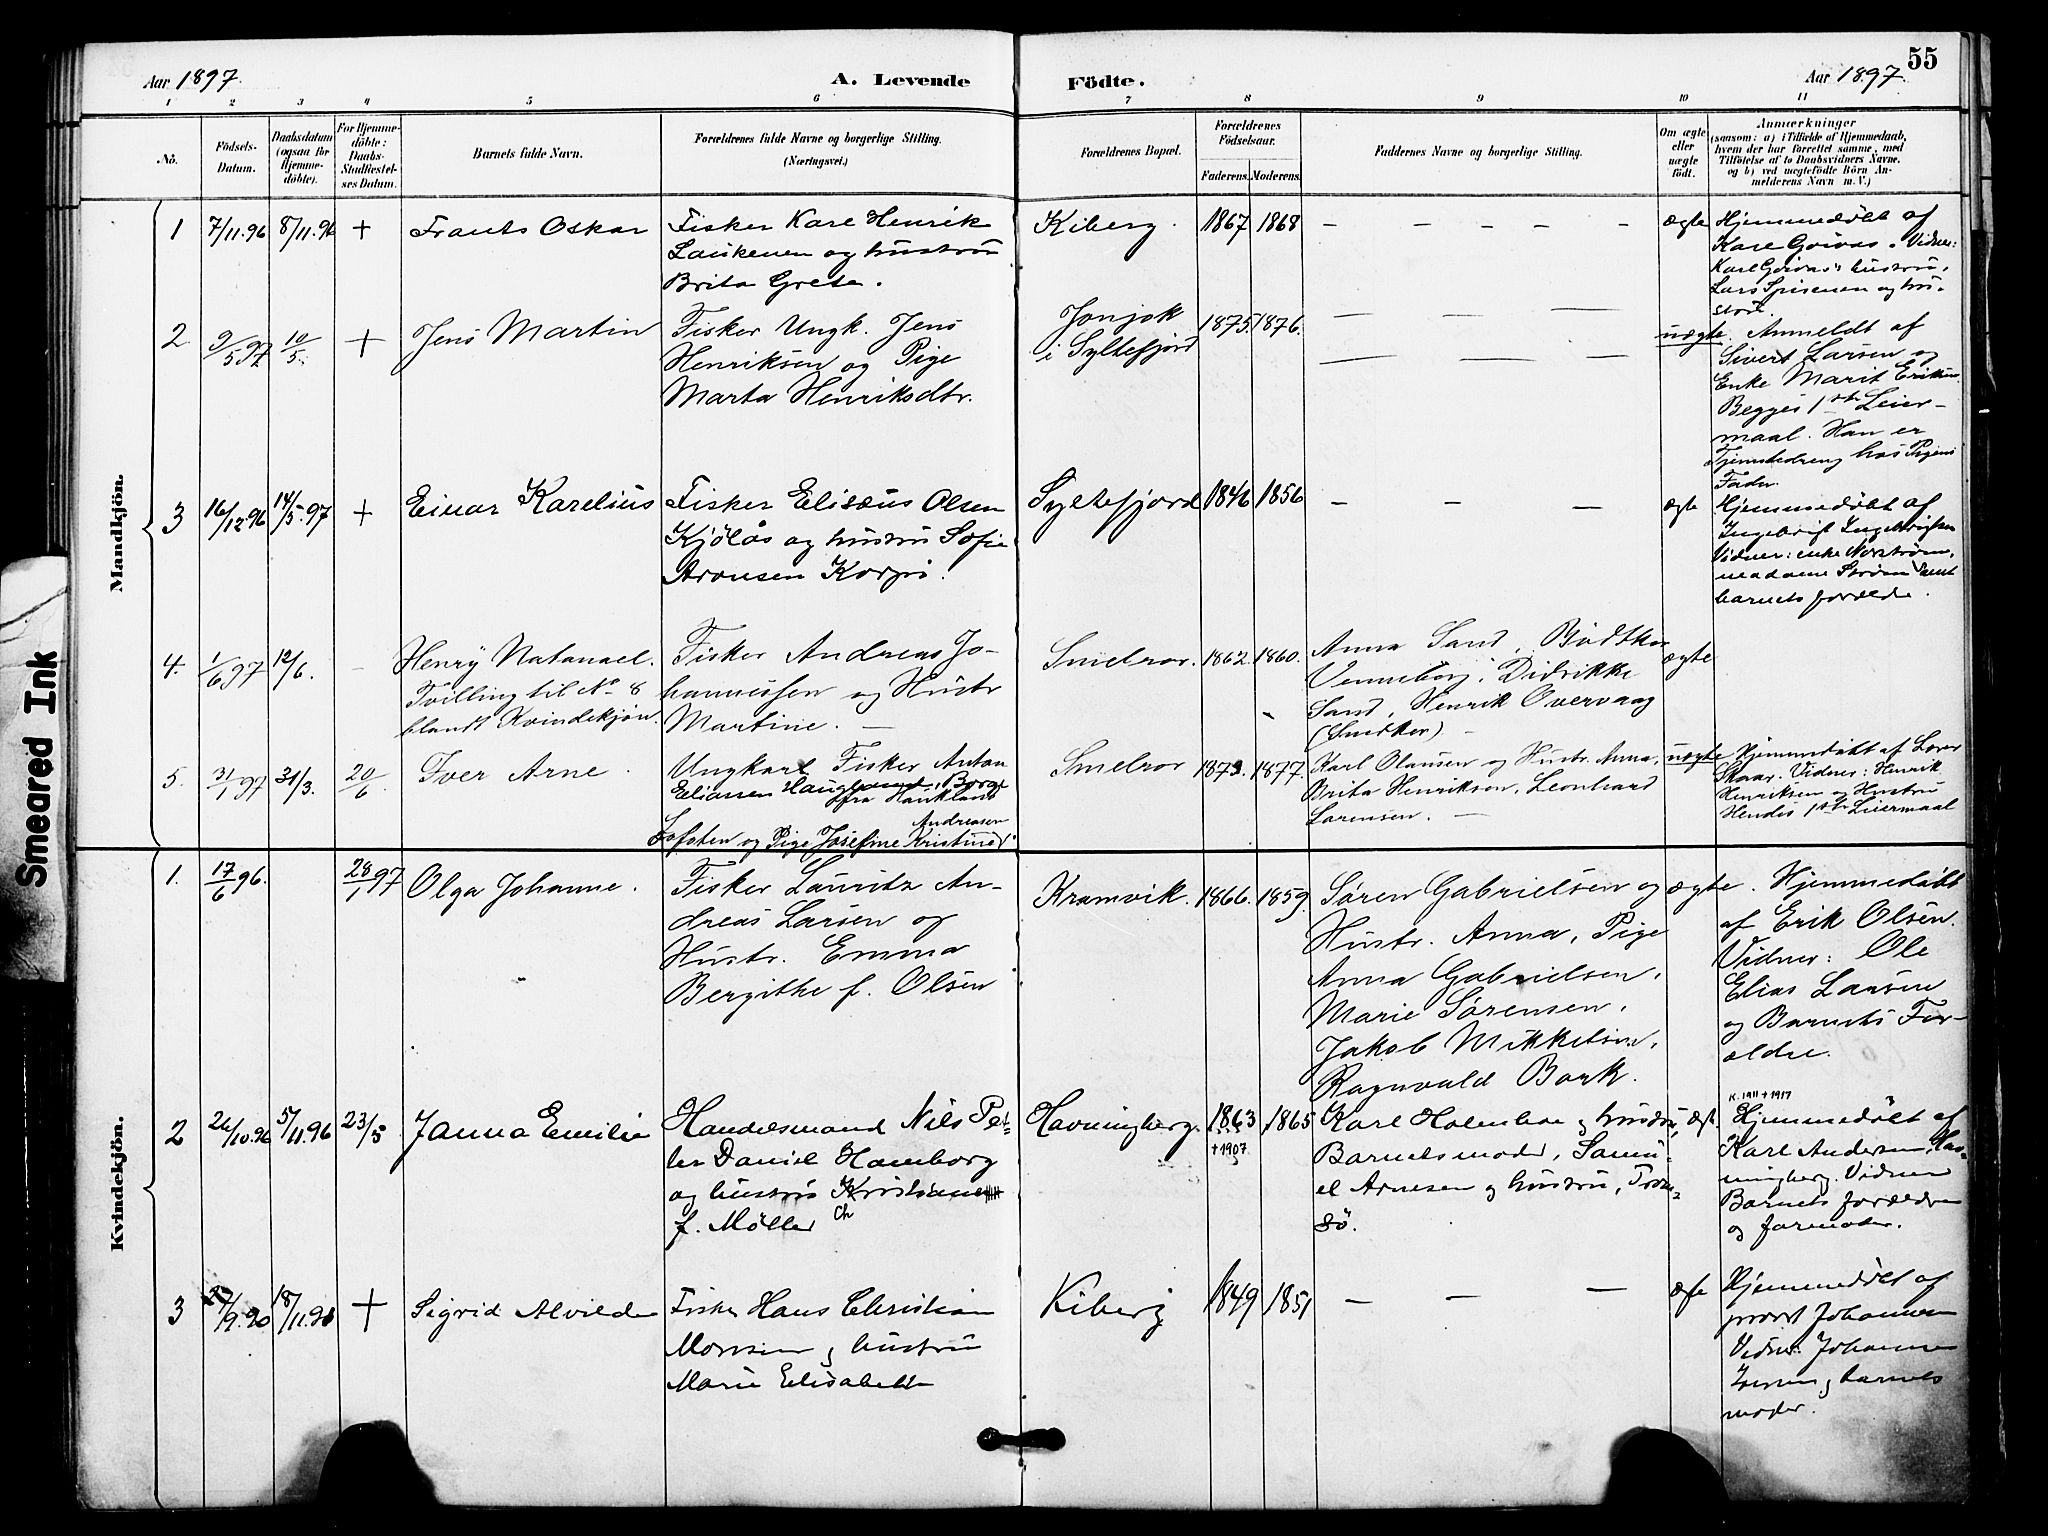 55
Aar 1897.
A. Levende
Födte.
Aar 1897.
1 2 3 4 5 6 7 8 9 10 11
No.
Födsels-
Datum.
Daabsdatum
(ogsaa for
Hjemme-
döbte).
For Hjemme-
döbte:
Daabs-
Stadfæstel-
ses Datum.
Barnets fulde Navn.
Forældrenes fulde Navne og borgerlige Stilling.
(Næringsvei.)
Forældrenes Bopæl.
Forældrenes
Födselsaar.
Faderens. Moderens.
Faddernes Navne og borgerlige Stilling.
Om ægte
eller
uægte
födt.
Anmærkninger
(saasom: a) i Tilfælde af Hjemmedaab,
hvem der har forrettet samme, med
Tilföielse af to Daabsvidners Navne,
og b) ved uægtefödte Börn An-
melderens Navn m. V.)
Mandkjön.
1 7/11.96 8/11.96 +
Frants Oskar
Fisker Karl Henrik
Laukenen og hustru
Brita Greta.
Kiberg.
1867 1868
– – – – –
ægte
Hjemmedøbt af
Karl Goivas. Vidner:
Karl Goivas's hustru,
Lars Spisenen og hu-
stru.
2 9/5 97 10/5. +
Jens Martin
Fisker Ungk. Jens
Henriksen og Pige
Marta Henriksdtr.
Jonjok
i Syltefjord
1875. 1876.
uægte.
Anmeldt af
Sivert Larsen og
Enke Marit Eriksen.
Begges 1ste Leier-
maal. Han er
Tjenestedreng hos Pigens
Fader.
3 16/12.96 14/5.97 +
Einar Karelius
Fisker Elisæus Olsen
Kjölås og hustru Sofie
Aronsen Korpi.
Syltefjord
1846 1856
– – –
ægte
Hjemmedøbt af
Ingebrigt Ingebrigtsen
Vidner: enke Norstrøm,
madame Strøm samt
barnets forældre.
4. 1/6 97 12/6. –
Henry Natanael.
Tvilling til No 8
blandt Kvindekjøn.
Fisker Andreas Jo-
hannessen og Hustr
Martine.
Smelror.
1862. 1860.
Anna Sand, Bødtker
Venneborg, Didrikke
Sand, Henrik Overvaag
(Snedker)
ægte
5. 31/1 97 31/3. 20/6
Iver Arne.
Ungkarl Fisker Anton
Eliassen Haugland, Borge
fra Haukland
Lofoten og Pige Josefine Kristine Andreasen
Smelror
1873. 1877.
Karl Olaussen og Hustr. Anna,
Brita Henriksen, Leonhard
Sørensen.
uægte
Hjemmedøbt af Lærer
Skaar. Vidner: Henrik
Henriksen og Hustru
Hendes 1ste Leiermaal
Kvindekjön.
1. 17/6 96. 28/1 97
Olga Johanne.
Fisker Lauritz An-
dreas Larsen og
Hustr. Emma
Bergithe f. Olsen
Kramvik.
1866. 1859.
Søren Gabrielsen og
Hustr. Anna, Pige
Anna Gabrielsen,
Marie Sørensen,
Jakob Mikkelsen,
Ragnvald Bark.
ægte.
Hjemmedøbt
af Erik Olsen.
Vidner: Ole
Elias Larsen
og Barnets For-
ældre.
2 26/10.96 5/11.96 23/5
Janna Emilie
Handelsmand Nils Pet-
ter Daniel Hamborg
og hustru Kristiane
Ch
f. Møller
Havningberg.
1863 1865
+1907
Karl Holmboe og hustru,
Barnets moder, Samu-
el Arnesen og hustru, Trom-
sö.
ægt.
K. 1911 + 1917
Hjemmedøbt af
Karl Andersen, Hav-
ningberg. Vidner
Barnets forældre
og farmoder.
3 /9.96 18/11.96 +
Sigrid Alvilde
Fisker Hans Christian
Monsen og hustru
Marie Elisabeth
Kiberg
1849 1851
– – –
ægte
Hjemmedøbt af
provst Johannesen
Vidner: Johannes
og barnets
moder.
Smeared Ink